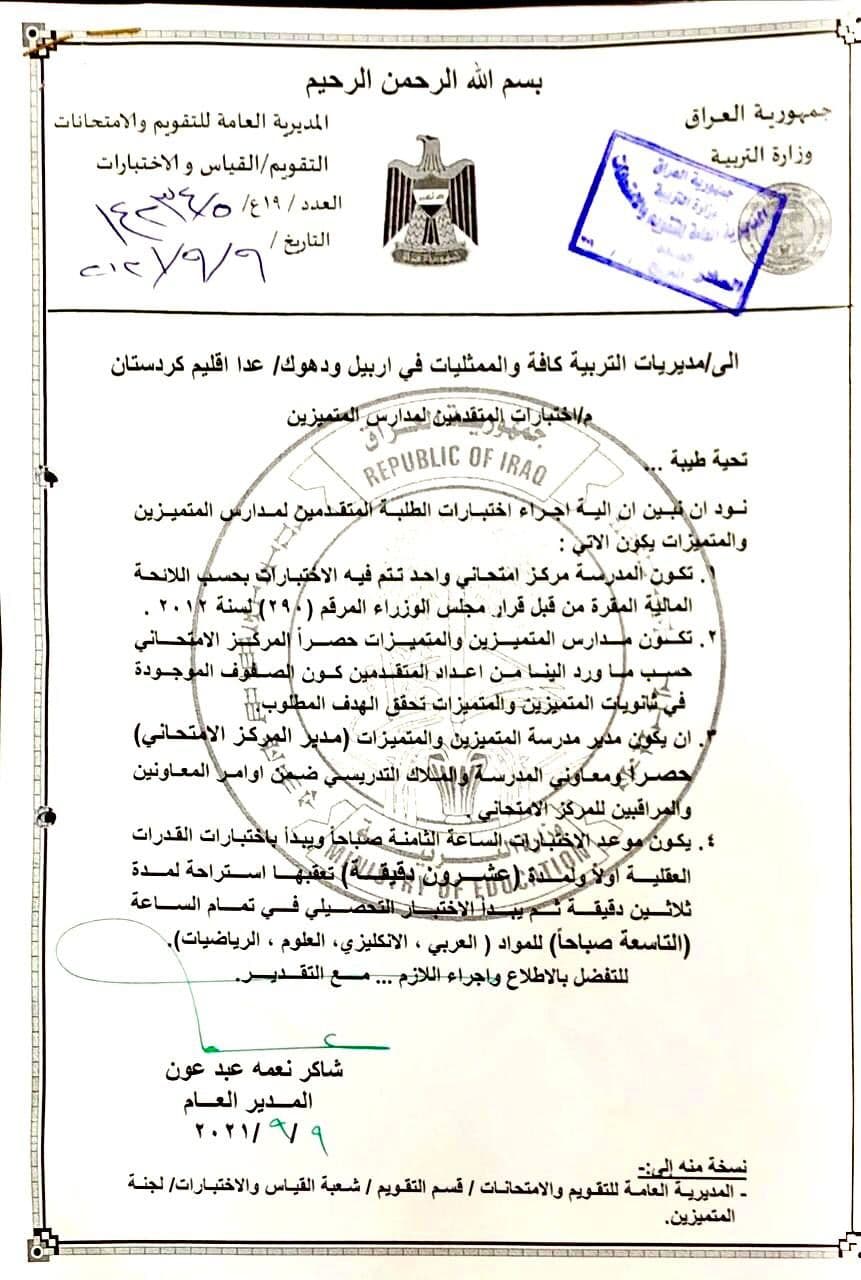 بسم الله الرحمن الرحيم
جمهورية العراق
وزارة التربية
المديرية العامة للتقويم والامتحانات
التقويم/القياس و الاختبارات
العدد / ١٩ع/ ١٤٢٣٤/٥
التاريخ / ٢٠٢١/٩/٩
جمهورية العراق
وزارة التربية
المديرية العامة للتقويم والامتحانات
جمهورية العراق
الى/مديريات التربية كافة والممثليات في اربيل ودهوك/ عدا اقليم كردستان
م/اختبارات المتقدمين لمدارس المتميزين
جمهورية العراق
REPUBLIC OF IRAQ
تحية طيبة ...
نود ان نبين ان الية اجراء اختبارات الطلبة المتقدمين لمدارس المتميزين
والمتميزات يكون الاتي :
١. تكون المدرسة مركز امتحاني واحد تتم فيه الاختبارات بحسب اللائحة
المالية المقرة من قبل قرار مجلس الوزراء المرقم (٢٩٠) لسنة ٢٠١٢ .
٢. تكون مدارس المتميزين والمتميزات حصراً المركز الامتحاني
حسب ما ورد الينا من اعداد المتقدمين كون الصفوف الموجودة
في ثانويات المتميزين والمتميزات تحقق الهدف المطلوب.
٣. ان يكون مدير مدرسة المتميزين والمتميزات (مدير المركز الامتحاني)
حصراً ومعاوني المدرسة والملاك التدريسي ضمن اوامر المعاونين
والمراقبين للمركز الامتحاني .
٤. يكون موعد الاختبارات الساعة الثامنة صباحاً ويبدأ باختبارات القدرات
العقلية اولاً ولمدة (عشرون دقيقة) تعقبها استراحة لمدة
ثلاثين دقيقة ثم يبدأ الاختبار التحصيلي في تمام الساعة
(التاسعة صباحاً) للمواد ( العربي ، الانكليزي، العلوم ، الرياضيات).
للتفضل بالاطلاع واجراء اللازم ... مع التقدير.
وزارة التربية
MINISTRY OF EDUCATION
شاكر نعمه عبد عون
المدير العام
٢٠٢١/٩/٩
نسخة منه إلى:-
- المديرية العامة للتقويم والامتحانات / قسم التقويم / شعبة القياس والاختبارات/ لجنة
المتميزين.